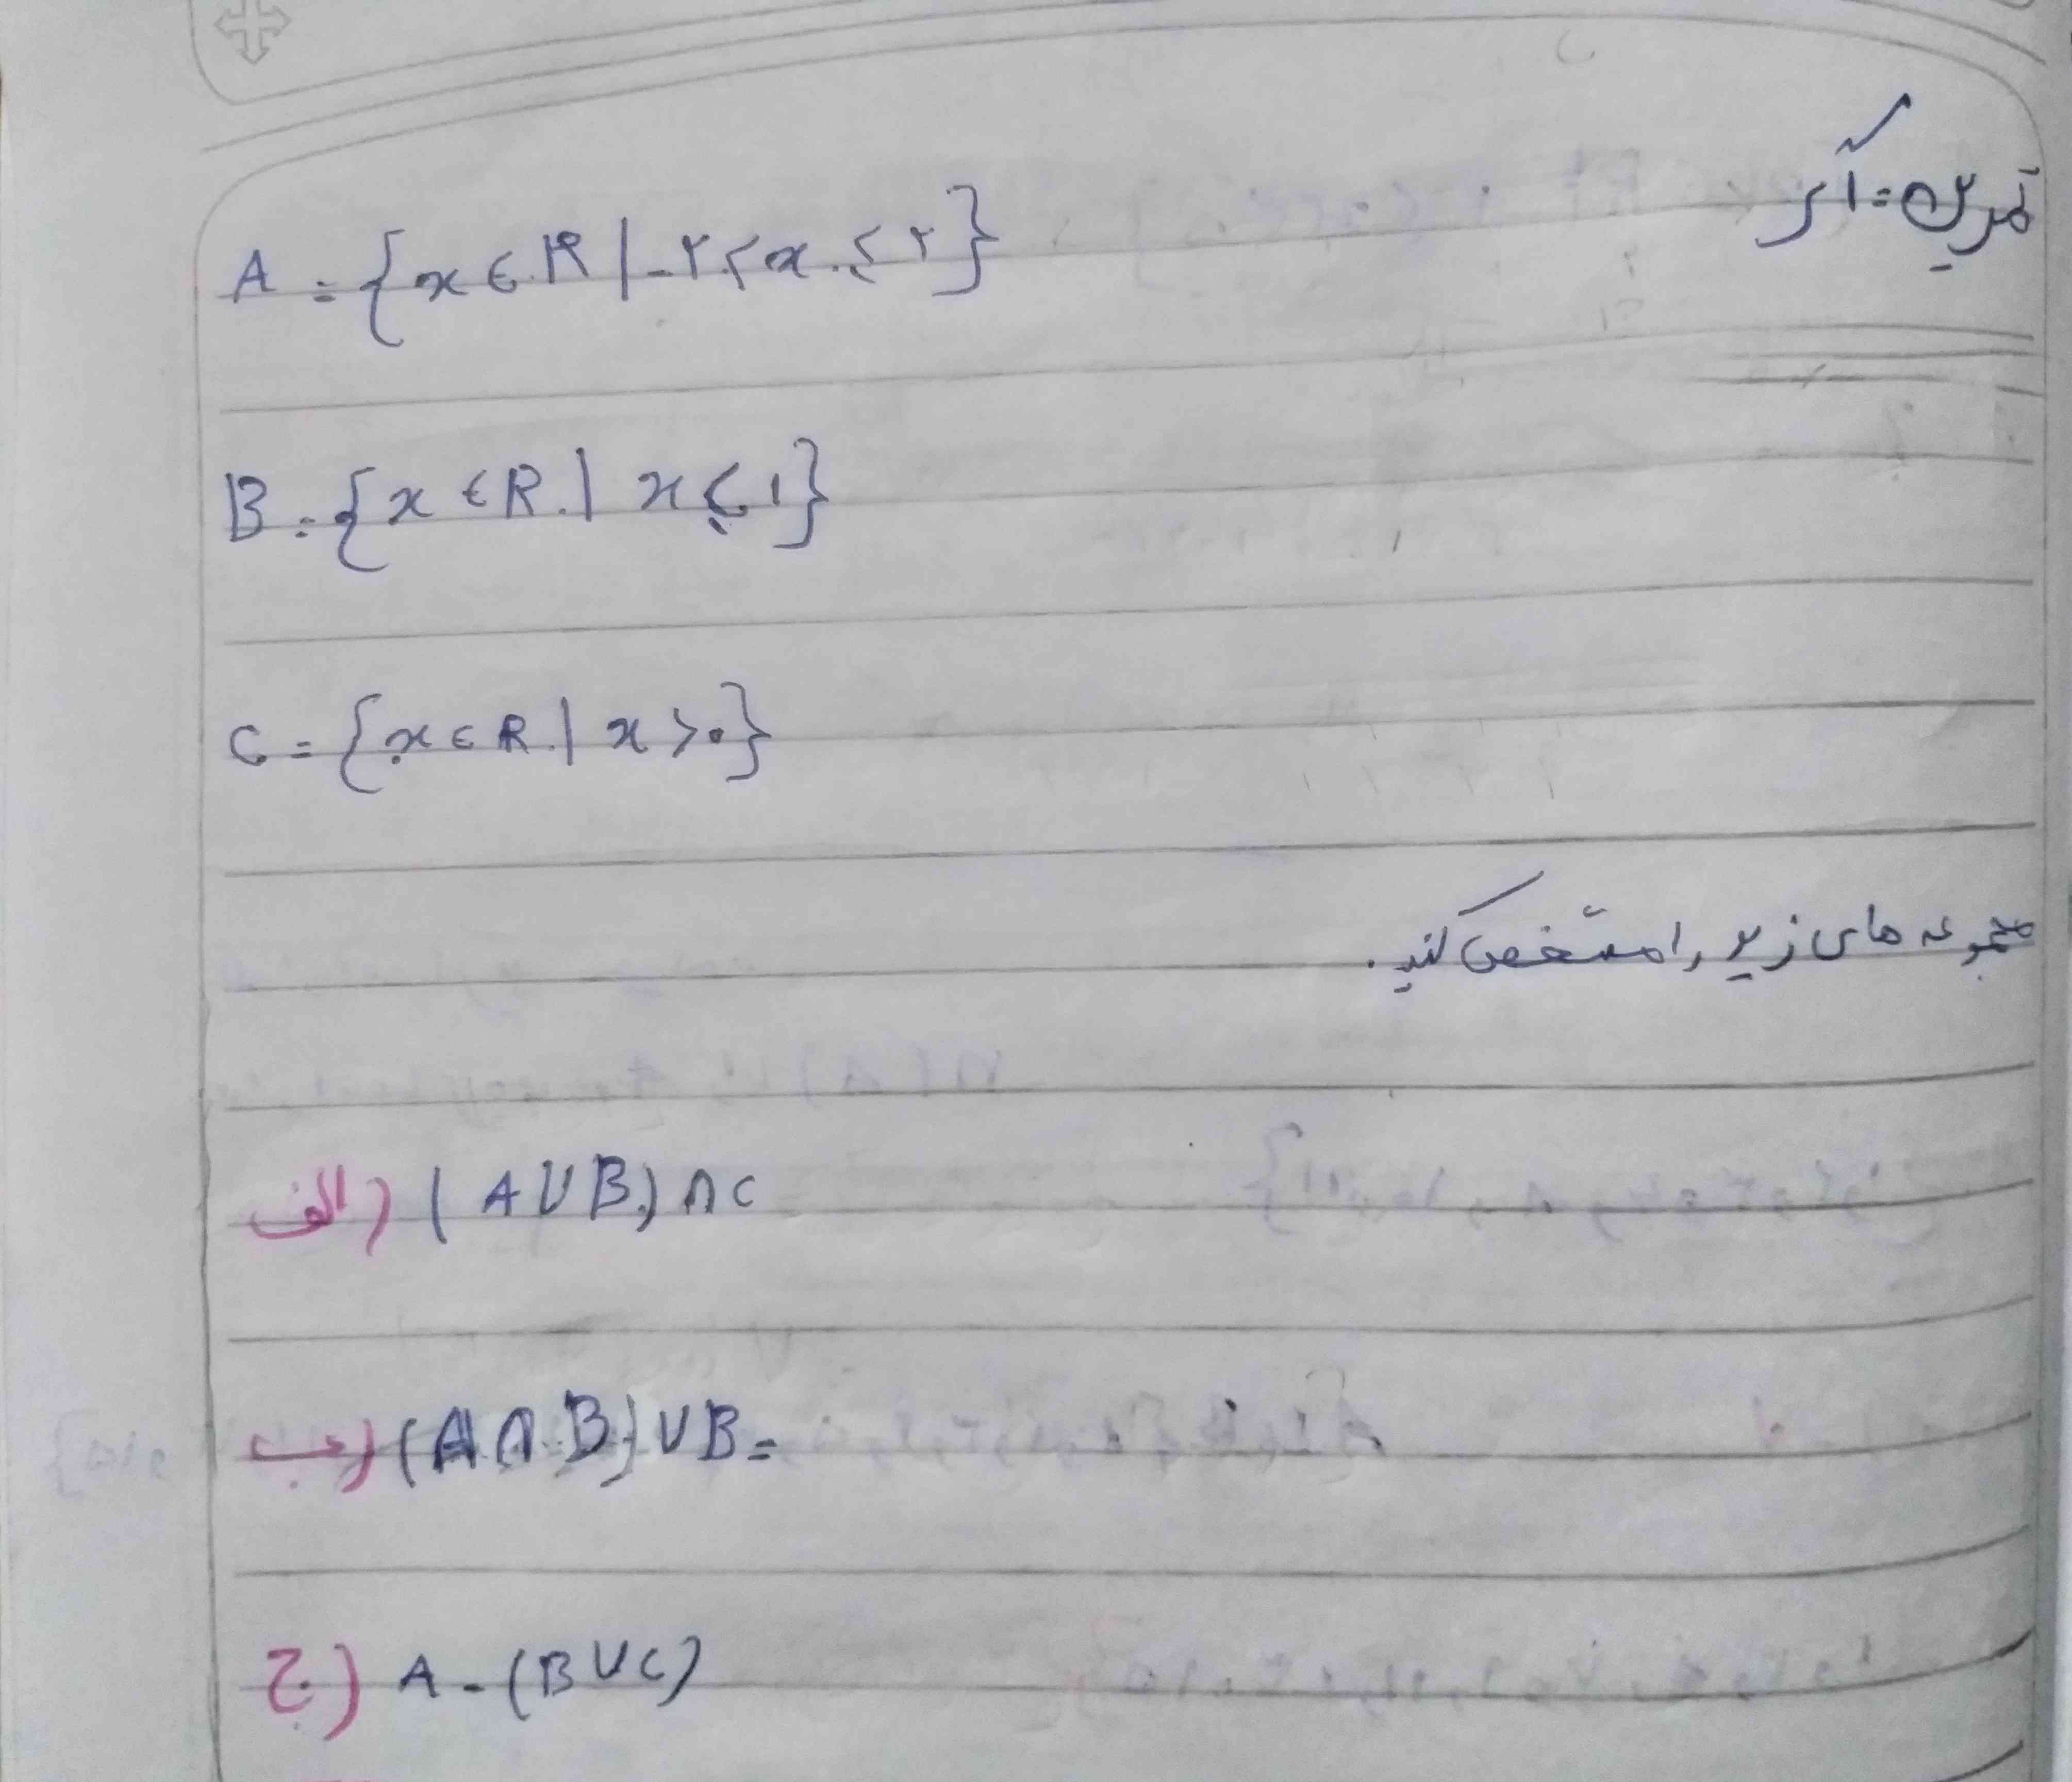 تمرین = اگر
A = {x ∈ R | -۲ < x ≤ ۲}
B = {x ∈ R | x ≤ ۱}
C = {x ∈ R | x > ۰}
مجموعه های زیر را مشخص کنید.
الف) (A ∪ B) ∩ C
ب) (A ∩ B) ∪ B =
ج) A - (B ∪ C)